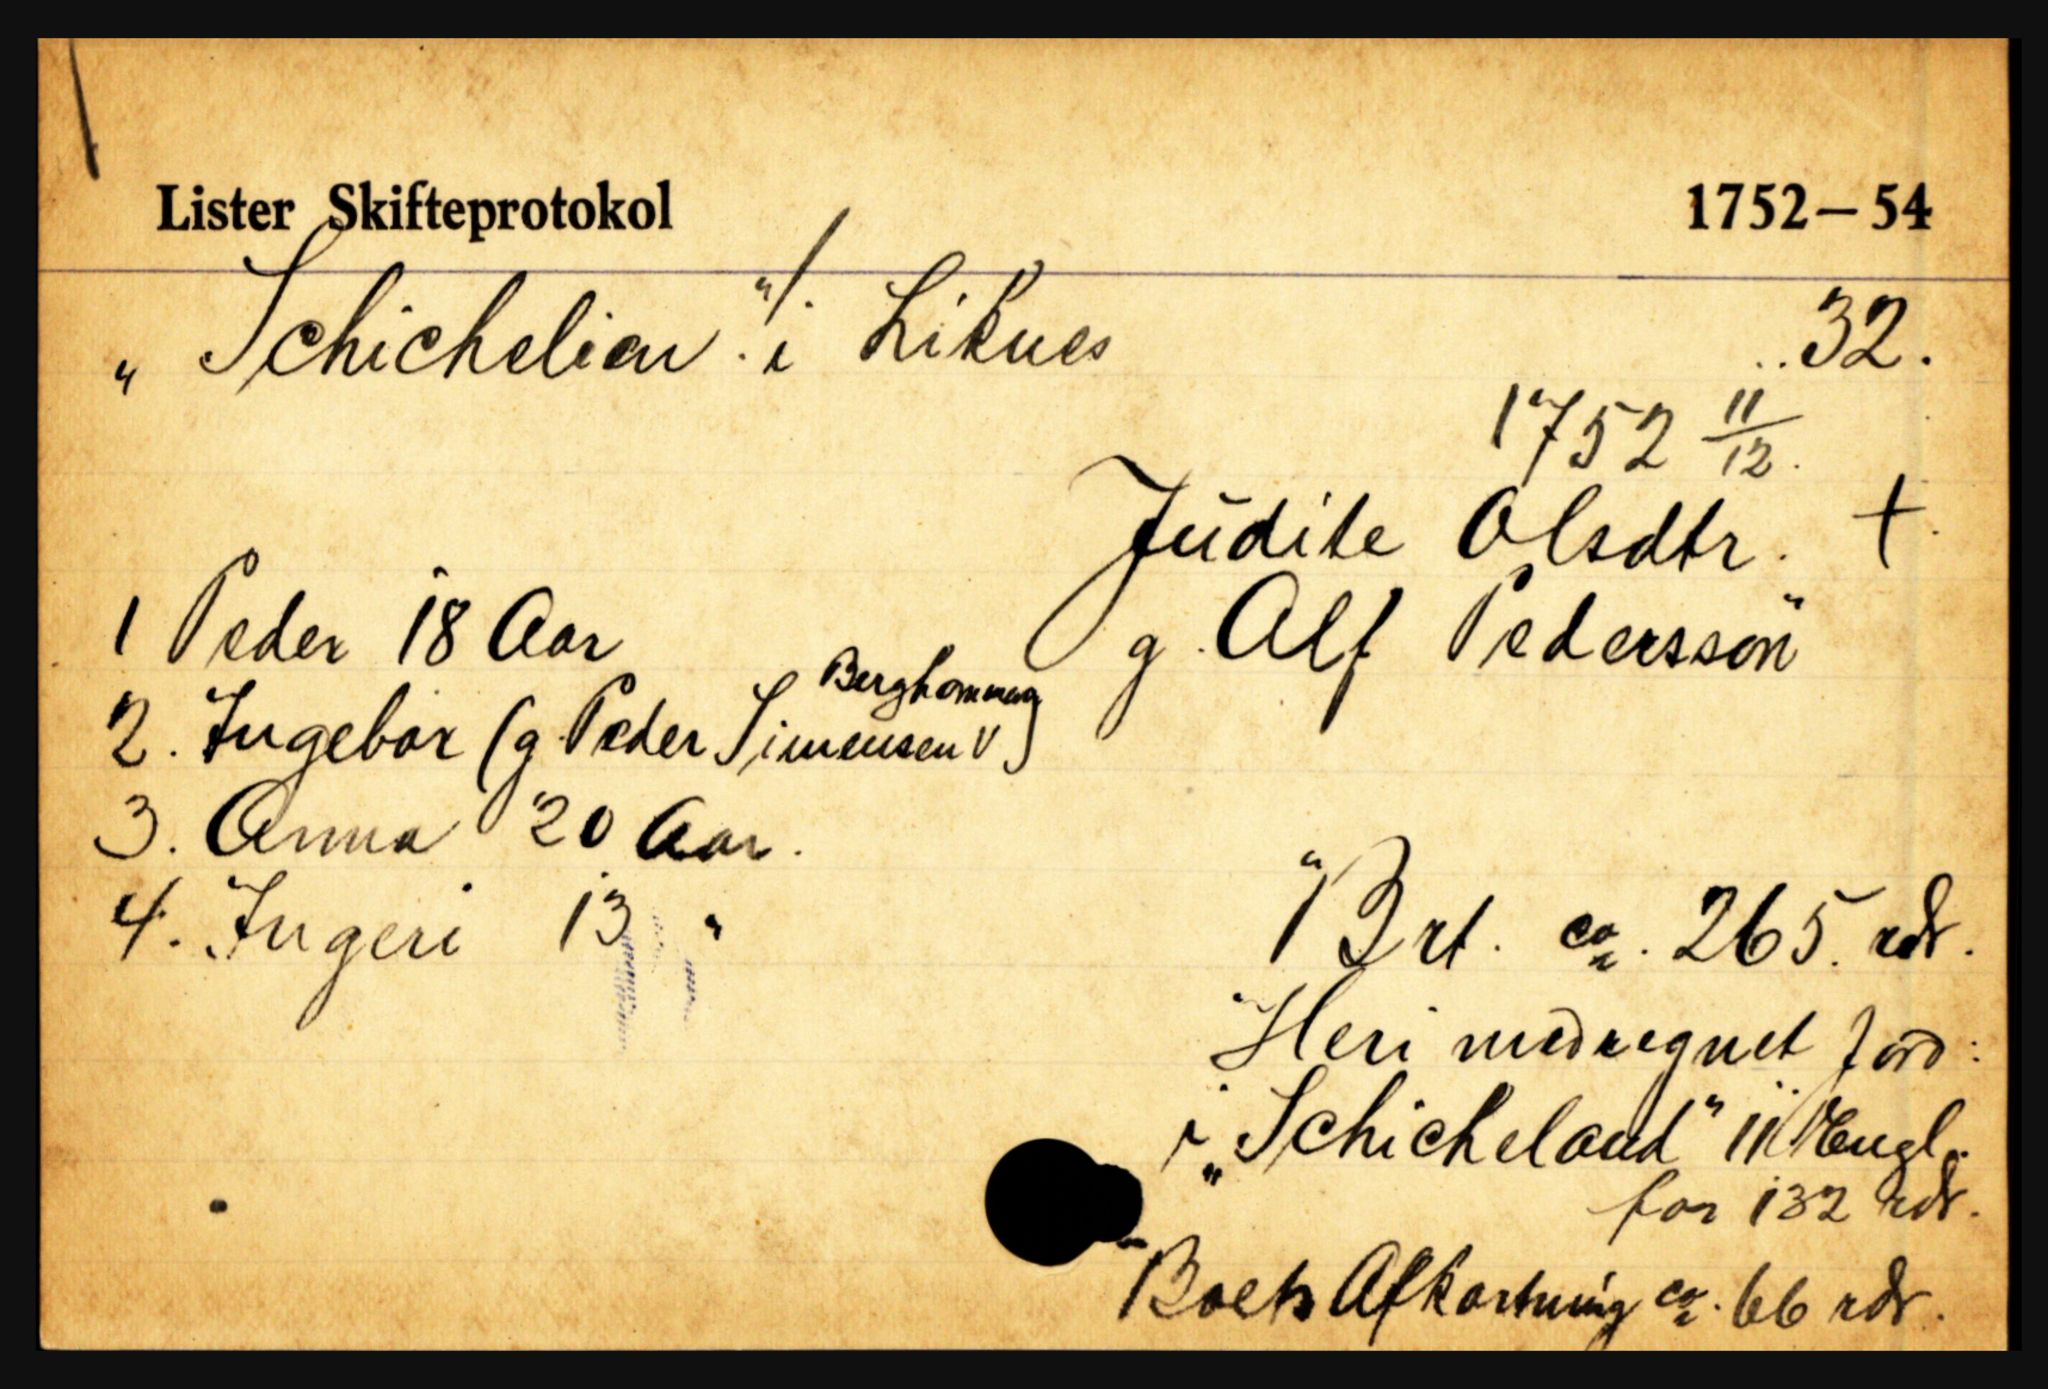 Lister Skifteprotokol 1752–54
„ Schichelien" i Liknes 32.
1752 11/12.
Judite Olsdtr. +
g. Alf Pedersson
1 Peder 18 Aar
2. Ingebor (g. Peder Simensen v Berghommag)
3. Anna 20 Aar.
4. Ingeri 13 "
Brt. ca. 265 rdr.
Heri medregnet Jord:
i „Schicheland" 11 Engl.
for 132 rdr.
Boets Afkortning ca. 66 rdr.